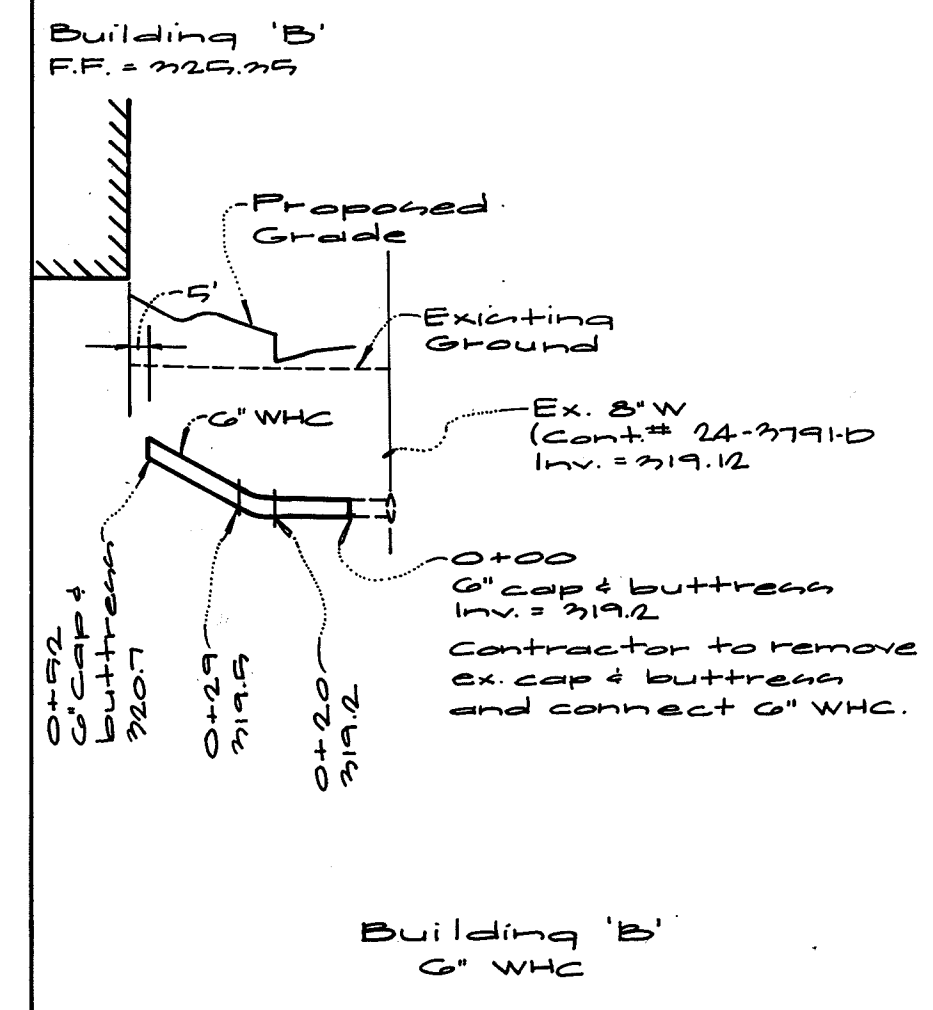 Building 'B'
F.F. = 325.35
Proposed
Grade
5'
Existing
Ground
6" WHC
Ex. 8" W
(Cont.# 24-3791-D
Inv. = 319.12
0+00
6" cap & buttress
Inv. = 319.2
Contractor to remove
ex. cap & buttress
and connect 6" WHC.
0+52
6" Cap &
buttress
320.7
0+29
319.5
0+20
319.2
Building 'B'
6" WHC